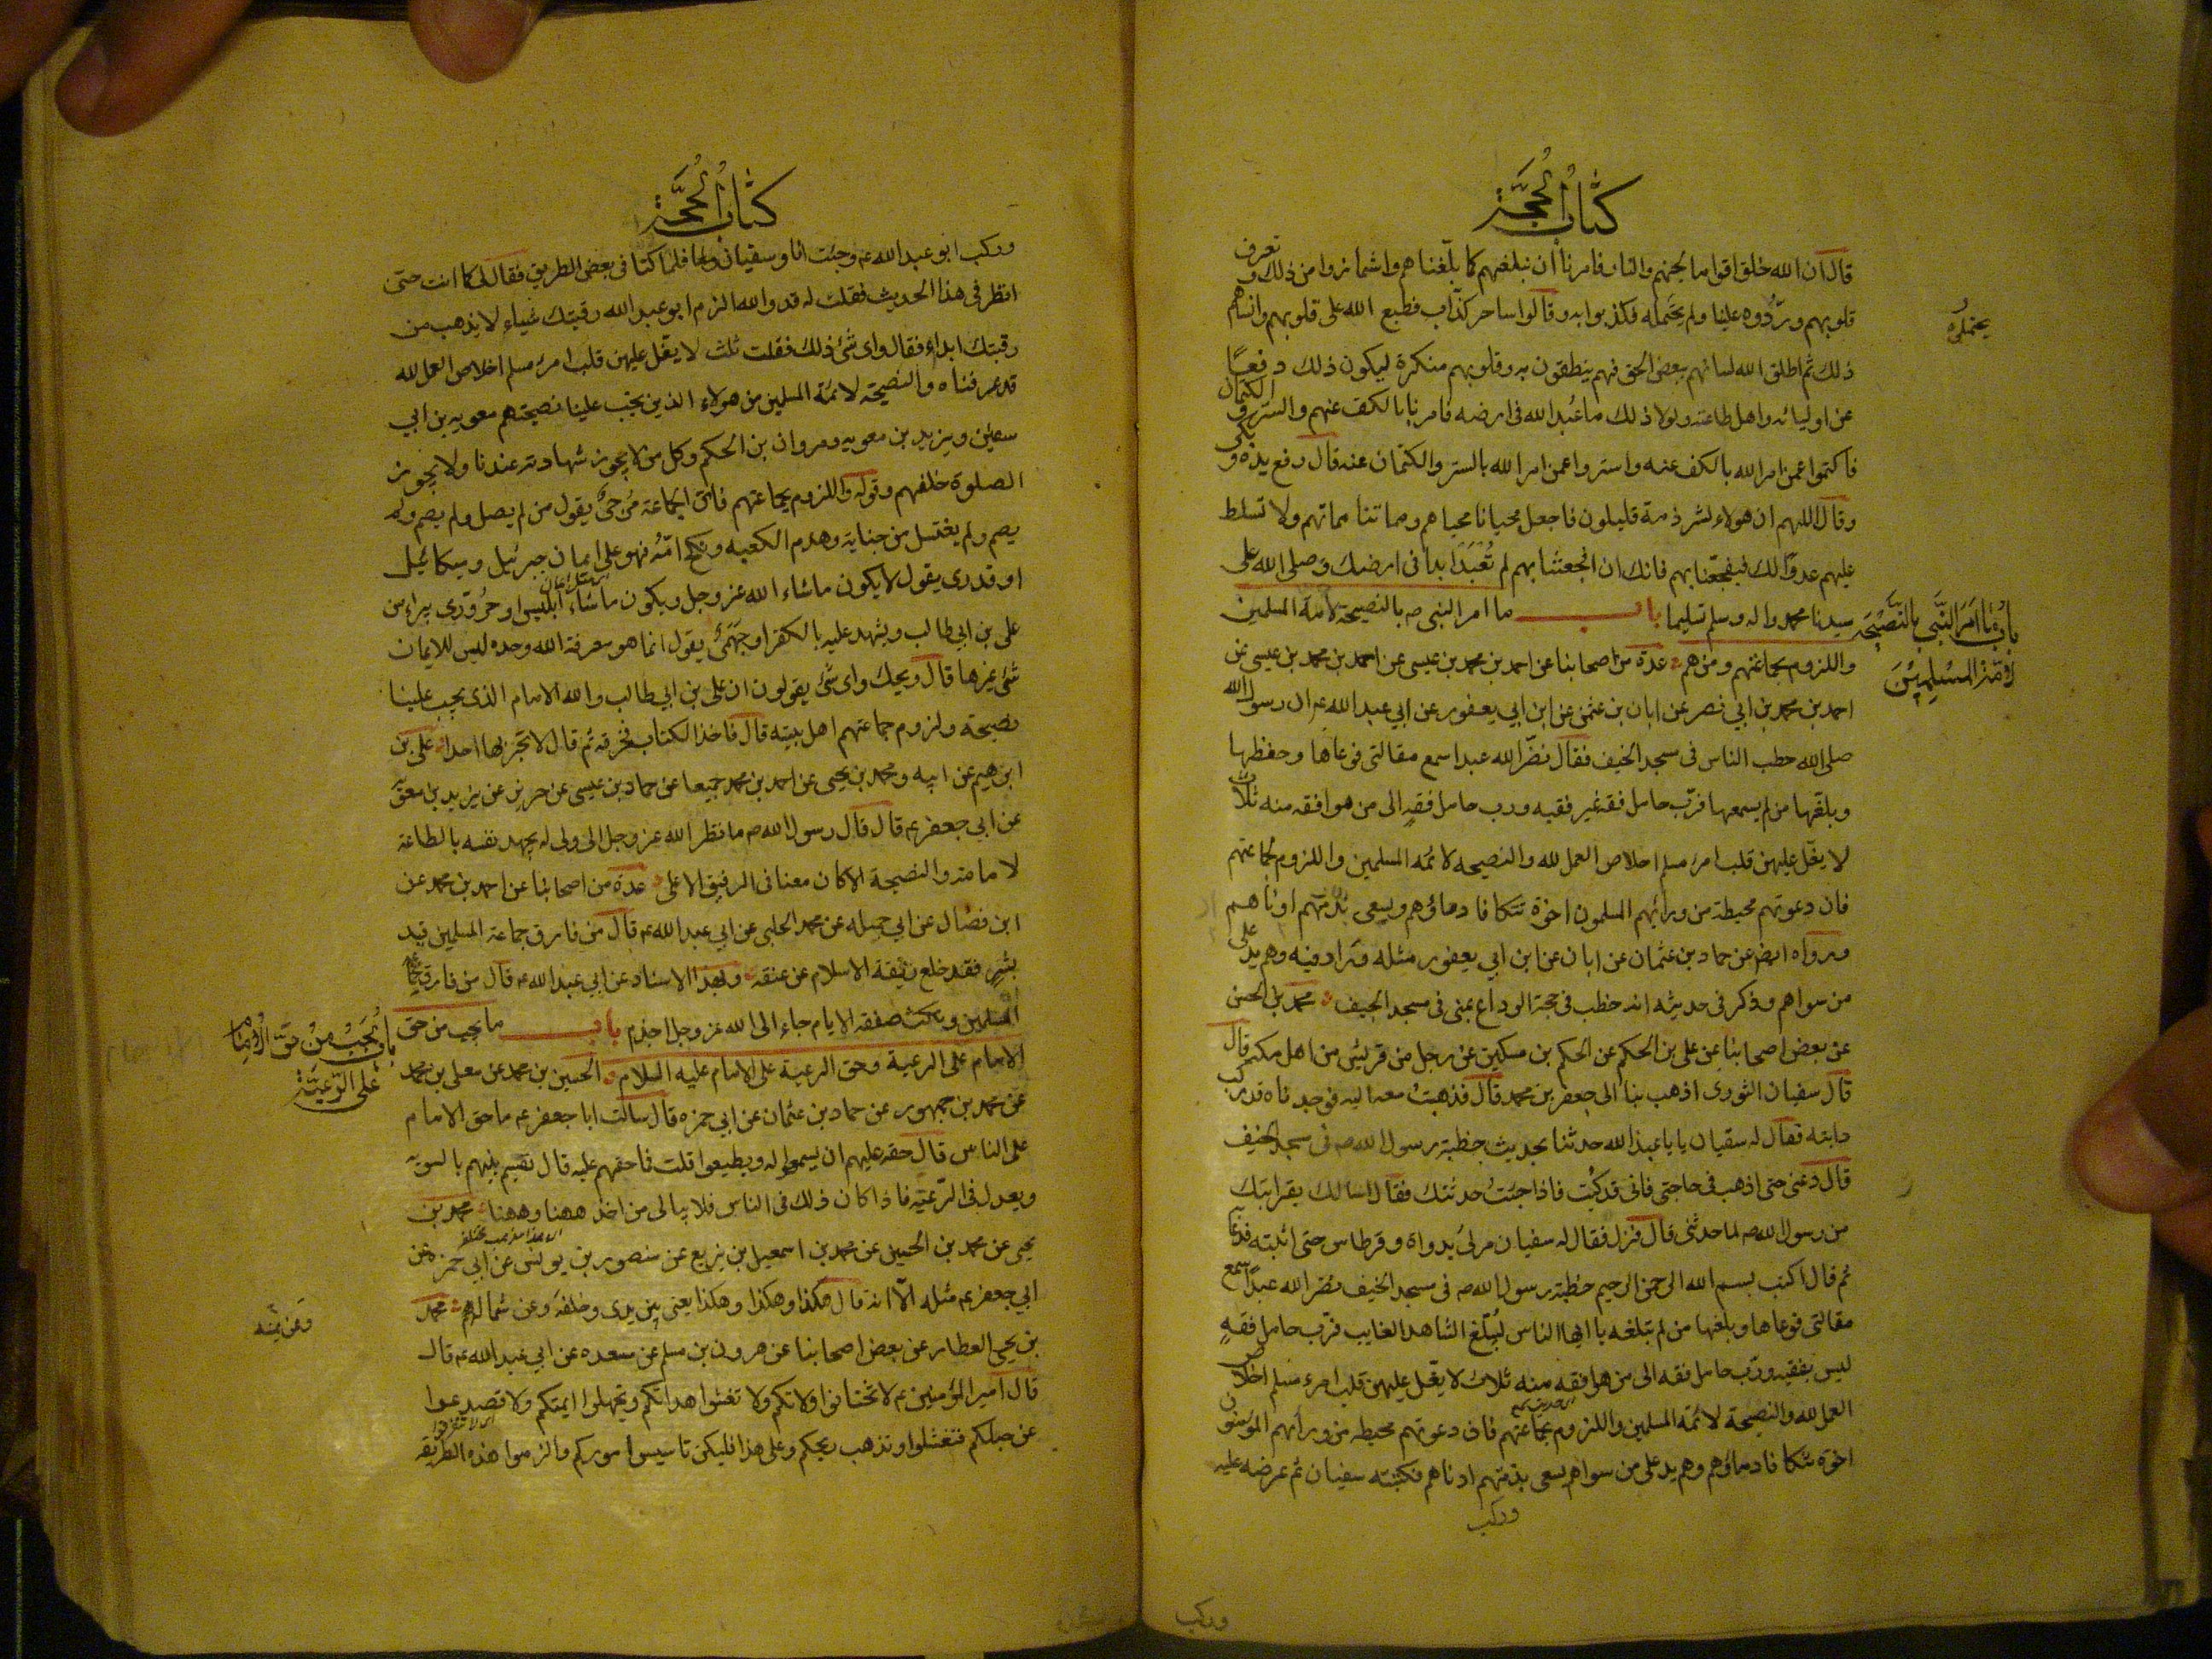 كتاب الحجة
قال ان الله خلق اقواما لجهنم والنار فامرنا ان نبلغهم كما بلغناهم واشمازوا من ذلك ونفرت
قلوبهم وردوه علينا ولم يحتملوه وكذبوا به وقالوا ساحر كذاب فطبع الله على قلوبهم وانساهم
يحتملوه
ذلك ثم اطلق الله لسانهم ببعض الحق فهم ينطقون به وقلوبهم منكرة ليكون ذلك دفعا
عن اوليائه واهل طاعته ولولا ذلك ما عبد الله فى ارضه فامرنا بالكف عنهم والستر والكتمان
فاكتموا عمن امر الله بالكف عنه واستروا عمن امر الله بالستر والكتمان عنه قال رفع يده وبكى
وقال اللهم ان هولاء لشرذمة قليلون فاجعل محيانا محياهم ومماتنا مماتهم ولا تسلط
عليهم عدوا لك فتفجعنا بهم فانك ان افجعتنا بهم لم تعبد ابدا فى ارضك وصلى الله على
سيدنا محمد واله وسلم تسليما باب ما امر النبى ص بالنصيحة لائمة المسلمين
باب ما امر النبي بالنصيحة
لائمة المسلمين
واللزوم بجماعتهم ومن هم عدة من اصحابنا عن احمد بن محمد بن عيسى عن احمد بن محمد بن عيسى عن
احمد بن محمد بن ابي نصر عن ابان بن عثمن عن ابن ابي يعفور عن ابي عبد الله ع ان رسول الله
صلى الله خطب الناس فى مسجد الخيف فقال نضر الله عبدا سمع مقالتى فوعاها وحفظها
وبلغها من لم يسمعها فرب حامل فقه غير فقيه ورب حامل فقه الى من هو افقه منه ثلاث
لا يغل عليهن قلب امرء مسلم اخلاص العمل لله والنصيحه لائمه المسلمين واللزوم لجماعتهم
فان دعوتهم محيطة من ورائهم المسلمون اخوة تتكافا دماؤهم ويسعى بذمتهم ادناهم
ورواه ايضا عن حماد بن عثمان عن ابان عن ابن ابي يعفور مثله وزاد فيه وهم يد على
من سواهم وذكر فى حديثه انه خطب فى حجة الوداع بمنى فى مسجد الخيف محمد بن الحسن
عن بعض اصحابنا عن على بن الحكم عن الحكم بن مسكين عن رجل من قريش من اهل مكه قال
قال سفيان الثورى اذهب بنا الى جعفر بن محمد قال فذهبت معه اليه فوجدناه قد ركب
دابته فقال له سفيان يا ابا عبد الله حدثنا بحديث خطبة رسول الله ص فى مسجد الخيف
قال دعنى حتى اذهب فى حاجتى فانى قد ركبت فاذا جئت حدثتك فقال اسالك بقرابتك
من رسول الله ص لما حدثنى قال فنزل فقال له سفيان مر لى بدواة وقرطاس حتى اثبته فدعا
ثم قال اكتب بسم الله الرحمن الرحيم خطبة رسول الله ص فى مسجد الخيف نضر الله عبدا سمع
مقالتى فوعاها وبلغها من لم تبلغه يا ايها الناس ليبلغ الشاهد الغايب فرب حامل فقه
ليس بفقيه ورب حامل فقه الى من هو افقه منه ثلاث لا يغل عليهن قلب امرء مسلم اخلاص
العمل لله والنصيحة لائمة المسلمين واللزوم بجماعتهم فان دعوتهم محيطه من ورائهم المؤمنون
اخوة تتكافا دماؤهم وهم يد على من سواهم يسعى بذمتهم ادناهم فكتبه سفيان ثم عرضه عليه
وركب
وركب
كتاب الحجة
وركب ابو عبد الله ع وجئت انا وسفيان فلما كنا فى بعض الطريق فقال لى كما انت حتى
انظر فى هذا الحديث فقلت له قد والله الزم ابو عبد الله رقبتك شياء لا يذهب من
رقبتك ابدا فقال واى شئ ذلك فقلت ثلث لا يغل عليهن قلب امرء مسلم اخلاص العمل لله
قد عرفناه والنصيحة لائمة المسلمين من هولاء الذين يجب علينا نصيحتهم معويه بن ابي
سفين ويزيد بن معويه ومروان بن الحكم وكل من لا يجوز شهادته عندنا ولا يجوز
الصلوة خلفهم وقوله واللزوم بجماعتهم فاى الجماعة مرجئ يقول من لم يصل ولم يصم ولم
يصم ولم يغتسل من جنابة وهدم الكعبه ونكح امه فهو على ايمان جبرئيل وميكائيل
او قدرى يقول لا يكون ماشاء الله عز وجل ويكون ماشاء ابليس او حرورى يبراء من
على بن ابي طالب ويشهد عليه بالكفر او جهمى يقول انما هو معرفة الله وحده ليس للايمان
شئ غيرها قال ويحك واى شئ يقولون ان على بن ابي طالب والله الامام الذى يجب علينا
نصيحته ولزوم جماعتهم اهل بيته قال فاخذ الكتاب فخرقه ثم قال لا تخبر بها احدا على بن
ابرهيم عن ابيه ومحمد بن يحيى عن احمد بن محمد جميعا عن حماد بن عيسى عن حريز عن بريد بن معويه
عن ابي جعفر ع قال قال رسول الله ص ما نظر الله عز وجل الى ولى له يجهد نفسه بالطاعة
لامامه والنصيحة الا كان معنا فى الرفيق الاعلى عدة من اصحابنا عن احمد بن محمد عن
ابن فضال عن ابي جميله عن محمد الحلبى عن ابي عبد الله ع قال من فارق جماعة المسلمين قيد
شبر فقد خلع ربقة الاسلام عن عنقه وبهذا الاسناد عن ابي عبد الله ع قال من فارق جماعة
المسلمين ونكث صفقة الامام جاء الى الله عز وجل اجذم باب ما يجب من حق
باب يجب من حق الامام
على الرعية
الامام على الرعية وحق الرعية على الامام عليه السلام الحسين بن محمد عن معلى بن محمد
عن محمد بن جمهور عن حماد بن عثمان عن ابي حمزه قال سالت ابا جعفر ع ما حق الامام
على الناس قال حقه عليهم ان يسمعوا له ويطيعوا قلت فما حقهم عليه قال يقسم بينهم بالسويه
ويعدل فى الرعيه فاذا كان ذلك فى الناس فلا يبالى من اخذ ههنا وههنا محمد بن
يحيى عن محمد بن الحسين عن محمد بن اسمعيل بن بزيع عن منصور بن يونس عن ابي حمزه عن
ابي جعفر ع مثله الا انه قال هكذا وهكذا وهكذا يعنى بين يدى وخلفه وعن شماله محمد
وعن يمينه
بن يحيى العطار عن بعض اصحابنا عن هرون بن مسلم عن مسعده عن ابي عبد الله ع قال
قال امير المؤمنين ع لا تختانوا ولاتكم ولا تغشوا هداتكم وتجهلوا ايمتكم ولا تصدعوا
عن حبلكم فتفشلوا وتذهب ريحكم وعلى هذا فليكن تاسيس اموركم والزموا هذه الطريقه